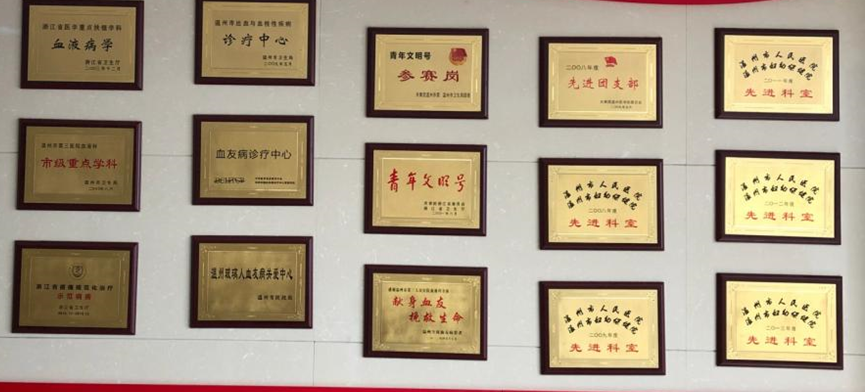 浙江省医学重点扶植学科
血液病学
浙江省卫生厅
温州市出血与血栓性疾病
诊疗中心
温州市卫生局
青年文明号
参赛岗
二00八年度
先进团支部
温州市人民医院
温州市妇幼保健院
二0一一年度
先进科室
市级重点学科
温州市卫生局
血友病诊疗中心
青年文明号
浙江省卫生厅
温州市人民医院
温州市妇幼保健院
二00八年度
先进科室
温州市人民医院
温州市妇幼保健院
二0一二年度
先进科室
示范病房
浙江省卫生厅
温州玻璃人血友病关爱中心
温州市民政局
献身血友
挽救生命
温州市人民医院
温州市妇幼保健院
二00九年度
先进科室
温州市人民医院
温州市妇幼保健院
二0一三年度
先进科室